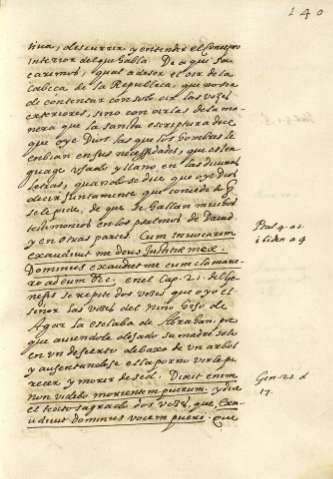 140
viva, descurrir y entender el concepto
interior del que habla. De aqui sa
caremos, qual a deser el oir de la
Cabeça de la Republica, que no se a
de contentar con solo oir las vozes
exteriores, sino con oirlas de la ma
nera que la santa escriptura dice
que oye Dios las que los hombres le
embian en sus necessidades, que es len
guage usado y llano en las divinas
letras, quando se dice que oye Dios
decir juntamente que concede lo q̃
se le pide, de que se hallan muchos
testimonios en los psalmos de David
y en otras partes. Cum invocarem
exaudivit me deus Iustitiæ meæ.
Dominus exaudiet me cum clama
vero ad eum &c. en el Cap. 21. del Ge
nesis se repite dos vezes que oyo el
señor las vozes del Niño hijo de
Agar la esclava de Abrahan, pues
que aviendole dejado su madre solo
en un desierto debaxo de un arbol
y ausentandose ella por no verle pe
recer y morir de sed. Dixit enim
non videbo morientem puerum. y dice
el texto sagrado dos vezes, que, exau
divit Dominus vocem pueri. que
Psal 4.
Gen. 21. d
17.